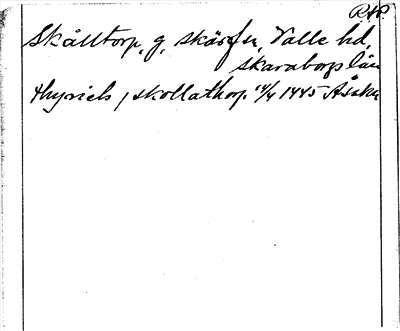 RAP.
Skålltorp, g, Skärfs sn, Valle hd,
Skaraborgs län
thyrich i skollathorp 14/4 1445 Åsaka